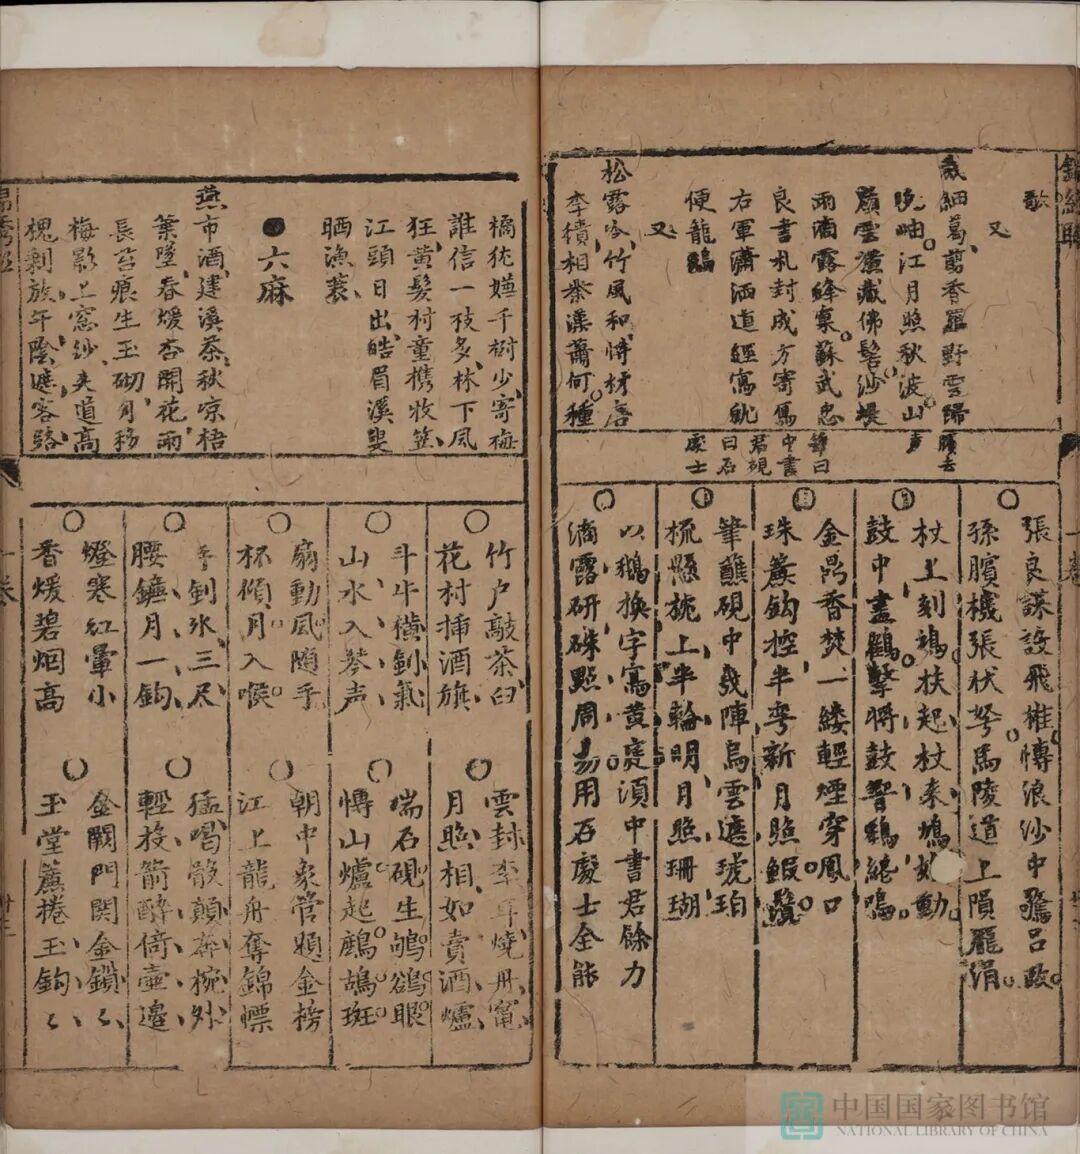 又
歲細葛剪香羅野雲歸
晚岫江月照秋波山
雨滴露絳囊蘇武忠
良書札封成方寄馬
右軍瀟洒道經寫就
便籠鵝
又
松露冷竹風和將材唐
李績相業漢蕭何種
張良謀設飛椎慱浪沙中驚呂政
孫臏機張伏弩馬陵道上隕龐涓
杖上刻鳩扶起杖来鳩
動
鼓中畫鶴擊將鼓響鶴
鳴
金
香焚一縷輕煙穿鳳口
珠簾鈎控半弯新月照鰕鬚
筆蘸硯中幾陣烏雲遮琥珀
梳懸
上半輪明月照珊瑚
以鵝換字寫黄庭湏中書君餘力
滴露研硃點周易用石處士全能
筆曰
中書
君硯
曰石
處士
橘犹
千樹少寄梅
誰信一枝多林下風
狂黄髪村童携牧笠
江頭日出皓眉溪叟
晒漁蓑
六麻
燕市酒建溪茶秋凉梧
葉墜春煖杏開花雨
長苔痕生玉砌月移
梅影上窓紗夹道高
槐剩放午陰遮客路
竹户敲茶臼
花村挿酒旗
斗牛横劍氣
山水入琴声
扇動風隨手
杯傾月入喉
手
劍氷三尺
腰鐮月一鈎
燈寒紅暈小
香煖碧烟高
雲封李耳燒丹竃
月照相如賣酒爐
端石硯生鴝鵒眼
慱山爐起鷓鴣斑
朝中象管題金榜
江上龍舟奪錦標
猛喝骰顛
椀外
輕投箭醉倚壷邉
金闕門関金鎖
玉堂簾捲玉鈎
中国国家图书馆
NATIONAL LIBRARY OF CHINA